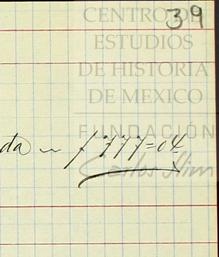 39
CENTRO DE
ESTUDIOS
DE HISTORIA
DE MEXICO
FUNDACIÓN
Carlos Slim
da ~ $777=04